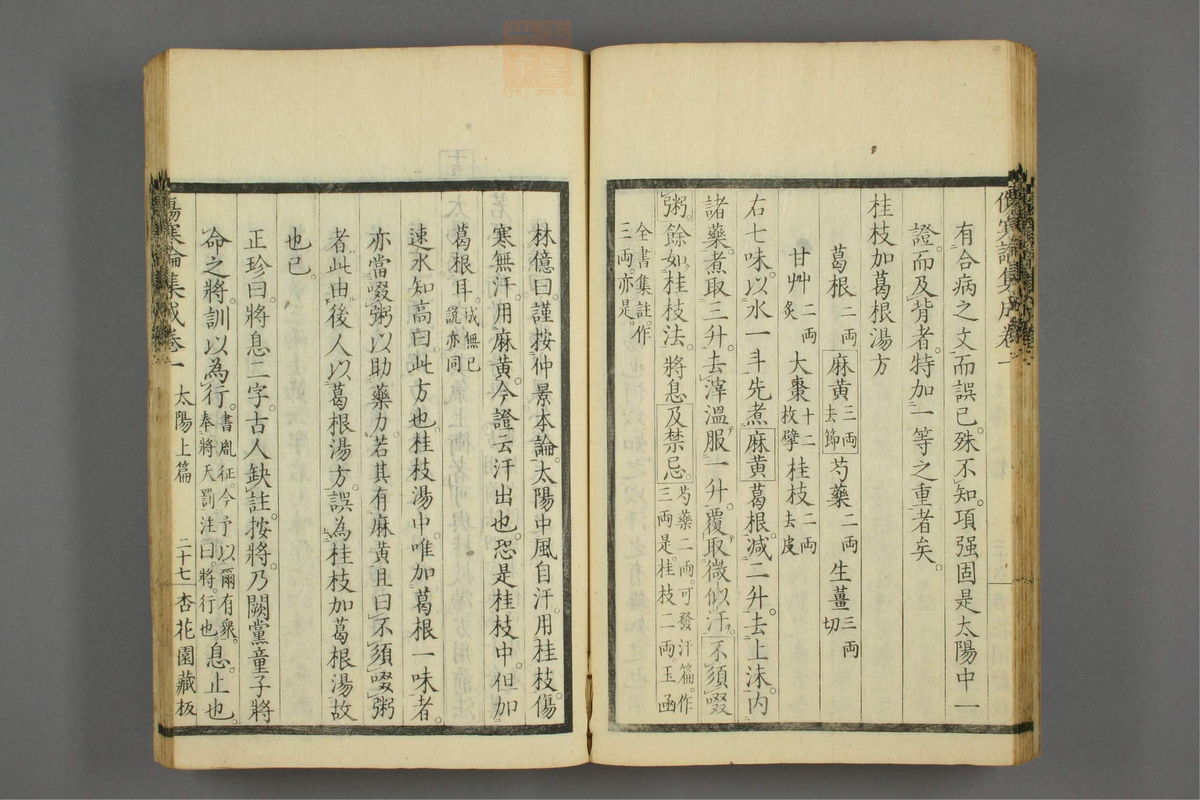 有合病之文而誤已。殊不知。項强固是太陽中一
證。而及背者。特加一等之重者矣。
桂枝加葛根湯方
葛根二兩 麻黃三兩去節 芍藥二兩 生薑三兩切
甘艸二兩炙 大棗十二枚擘 桂枝二兩去皮
右七味。以水一斗先煮麻黃葛根。減二升。去上沫。内
諸藥。煮取三升。去滓溫服一升。覆取微似汗。不須啜
粥。餘如桂枝法。將息及禁忌。芍藥二兩。可發汁篇。作三兩是。桂枝二兩。玉函
全書集註。作三兩。亦是。
林億曰。謹按仲景本論。太陽中風自汗。用桂枝。傷
寒無汗。用麻黃。今證云汗出也。恐是桂枝中。但加
葛根耳。成無己說亦同
速水知高曰。此方也。桂枝湯中。唯加葛根一味者。
亦當啜粥以助藥力。若其有麻黃且曰不須啜粥
者。此由後人以葛根湯方。誤為桂枝加葛根湯故
也已。
正珍曰。將息二字。古人缺註。按將。乃闕黨童子將
命之將。訓以為行。書胤征。今予以爾有衆。奉將天罰注曰。將。行也。息。止也。
傷寒論集成卷一 太陽上篇 二十七 杏花園藏板